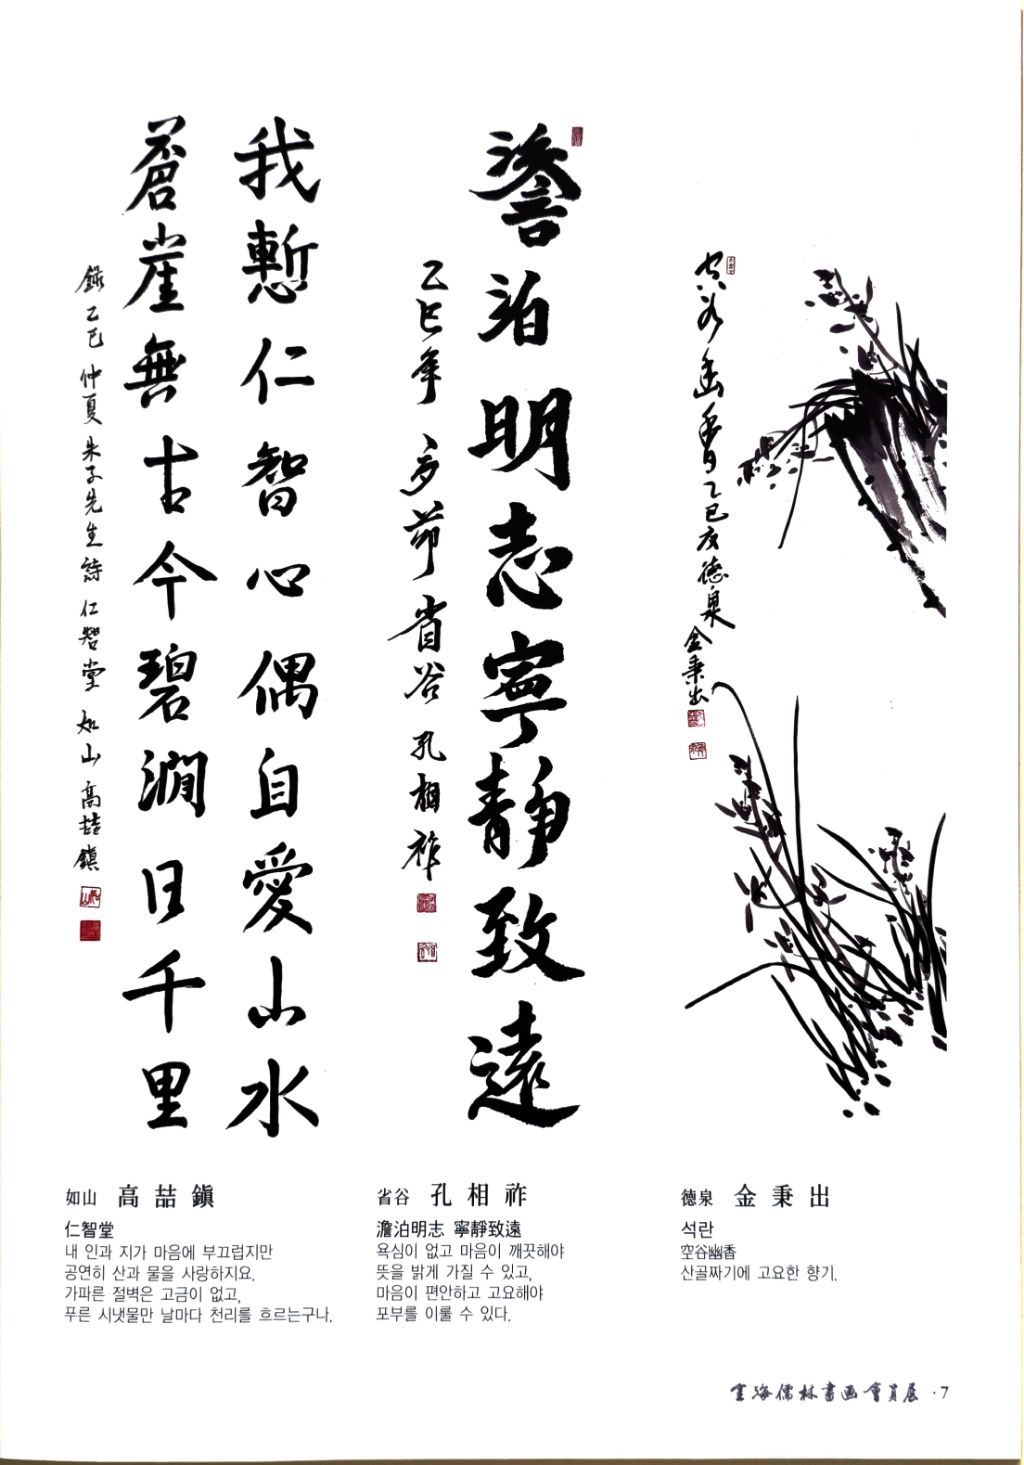 我慙仁智心偶自愛山水
蒼崖無古今碧澗日千里
錄乙巳仲夏朱子先生詩 仁智堂 如山 高喆鎭
澹泊明志寧靜致遠
乙巳年 多節 省谷 孔相祚
空谷幽香 乙巳夏德泉
金秉出
如山 高喆鎭
仁智堂
내 인과 지가 마음에 부끄럽지만
공연히 산과 물을 사랑하지요.
가파른 절벽은 고금이 없고,
푸른 시냇물만 날마다 천리를 흐르는구나.
省谷 孔相祚
澹泊明志 寧靜致遠
욕심이 없고 마음이 깨끗해야
뜻을 밝게 가질 수 있고,
마음이 편안하고 고요해야
포부를 이룰 수 있다.
德泉 金秉出
석란
空谷幽香
산골짜기에 고요한 향기.
儒林書画會員展 · 7